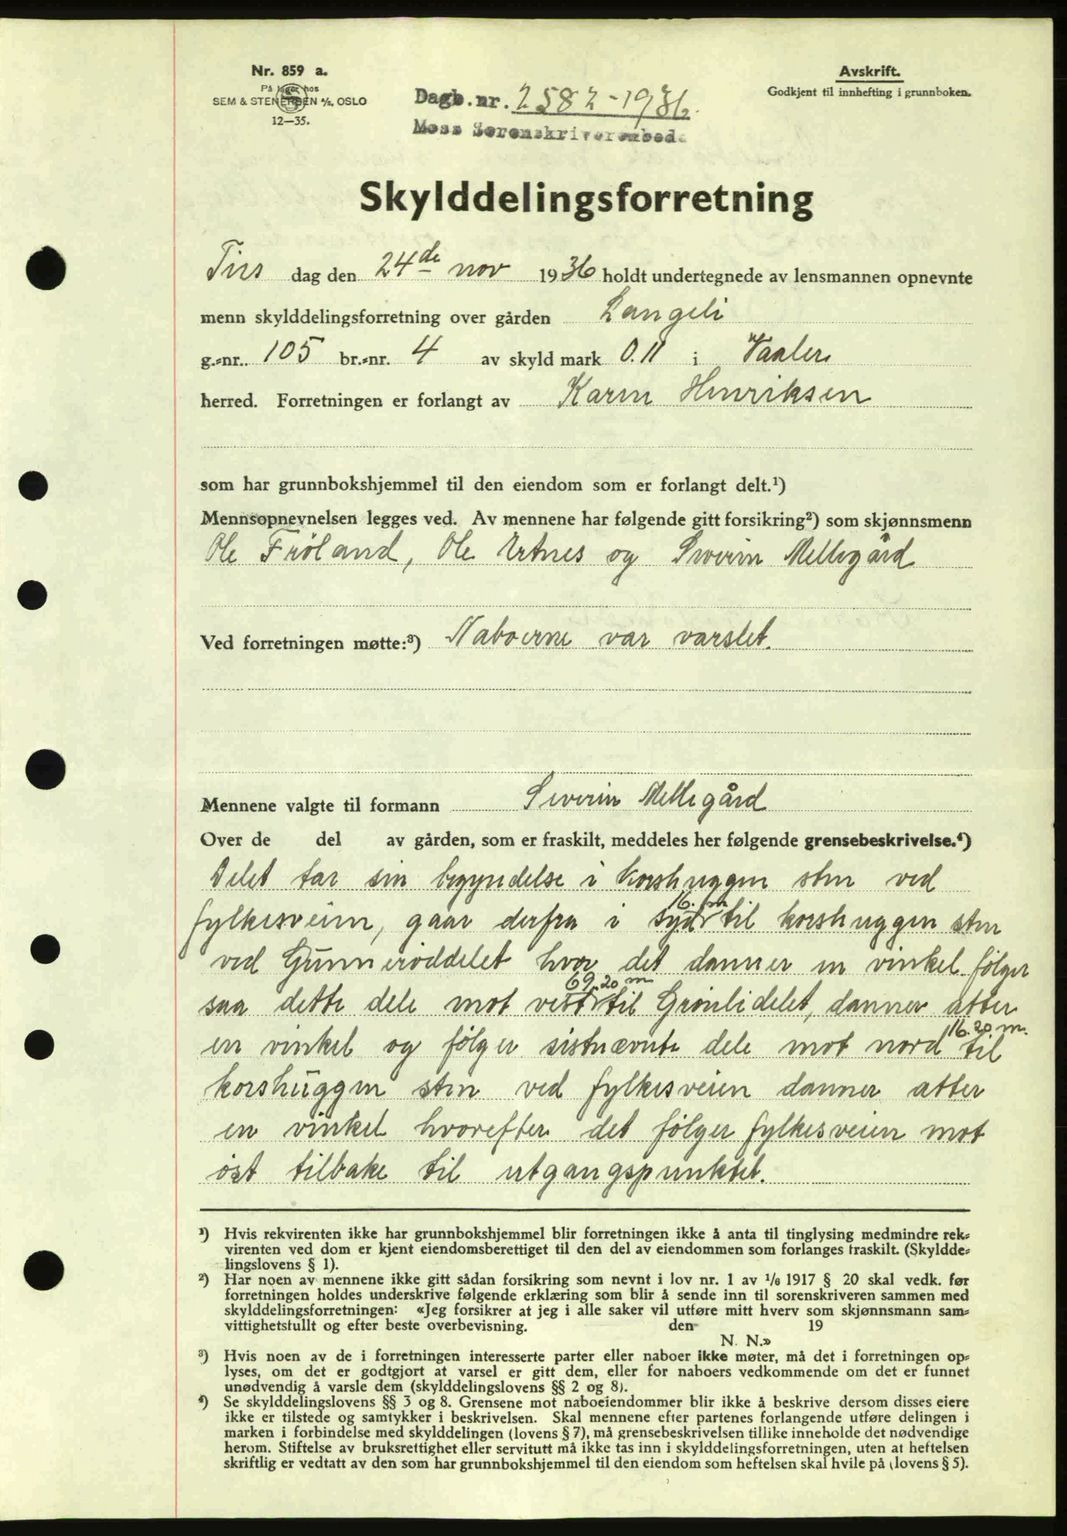 Nr. 859 a.
På lager hos
SEM & STENERSEN A/S, OSLO
12—35.
Dagb.nr. 2582-1936.
Moss Sorenskriverembede
Avskrift.
Godkjent til innhefting i grunnboken.
Skylddelingsforretning
Tirs dag den 24de nov 1936 holdt undertegnede av lensmannen opnevnte
menn skylddelingsforretning over gården Langeli
g.-nr. 105 br.-nr. 4 av skyld mark 0.11 i Vaaler
herred. Forretningen er forlangt av Karin Henriksen
som har grunnbokshjemmel til den eiendom som er forlangt delt.¹)
Mennsopnevnelsen legges ved. Av mennene har følgende gitt forsikring²) som skjønnsmenn
Ole Frøland, Ole Ertnes og Severin Mellegård
Ved forretningen møtte:³) Naboerne var varslet.
Mennene valgte til formann Severin Mellegård
Over de del av gården, som er fraskilt, meddeles her følgende grensebeskrivelse.⁴)
Delet tar sin begyndelse i korshuggen sten ved
fylkesveien, gaar derfra i syd 16. m til korshuggen sten
ved Gunnerøddelet hvor det danner en vinkel følger
saa dette dele mot vest 69.20 m til Grønlidelet, danner atter
en vinkel og følger sistnævnte dele mot nord 16.20 m. til
korshuggen sten ved fylkesveien danner atter
en vinkel hvorefter det følger fylkesveien mot
øst tilbake til utgangspunktet.
¹) Hvis rekvirenten ikke har grunnbokshjemmel blir forretningen ikke å anta til tinglysing medmindre rek-
virenten ved dom er kjent eiendomsberettiget til den del av eiendommen som forlanges fraskilt. (Skyldde-
lingslovens § 1).
²) Har noen av mennene ikke gitt sådan forsikring som nevnt i lov nr. 1 av 1/6 1917 § 20 skal vedk. før
forretningen holdes underskrive følgende erklæring som blir å sende inn til sorenskriveren sammen med
skylddelingsforretningen: «Jeg forsikrer at jeg i alle saker vil utføre mitt hverv som skjønnsmann sam-
vittighetsfullt og efter beste overbevisning. den 19
N. N.»
³) Hvis noen av de i forretningen interesserte parter eller naboer ikke møter, må det i forretningen op-
lyses, om det er godtgjort at varsel er gitt dem, eller for naboers vedkommende om det er funnet
unødvendig å varsle dem (skylddelingslovens §§ 2 og 8).
⁴) Se skylddelingslovens §§ 3 og 8. Grensene mot naboeiendommer blir ikke å beskrive dersom disses eiere
ikke er tilstede og samtykker i beskrivelsen. Skal mennene efter partenes forlangende utføre delingen i
marken i forbindelse med skylddelingen (lovens § 7), må grensebeskrivelsen tillike inneholde det nødvendige
herom. Stiftelse av bruksrettighet eller servitutt må ikke tas inn i skylddelingsforretningen, uten at heftelsen
skriftlig er vedtatt av den som har grunnbokshjemmel til den eiendom som heftelsen skal hvile på (lovens § 5).